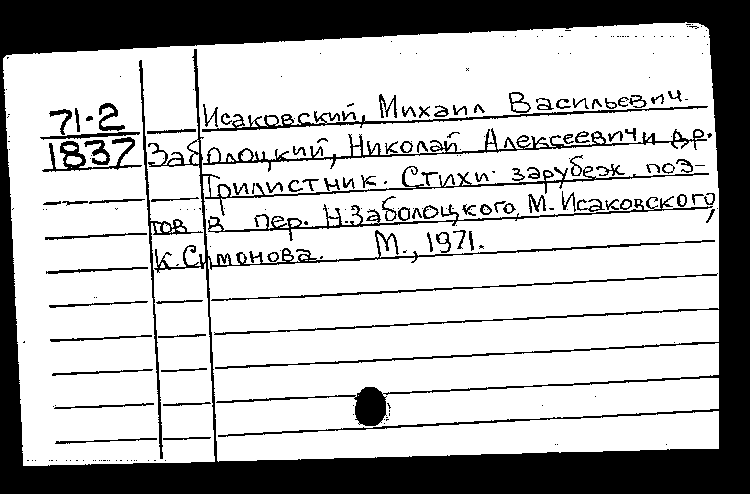 71-2 Исаковский, Михаил Васильевич.
1837 Заболоцкий, Николай Алексеевич и др.
Трилистник. Стихи зарубеж. поэ-
тов в пер. Н.Заболоцкого, М.Исаковского,
К.Симонова. М., 1971.